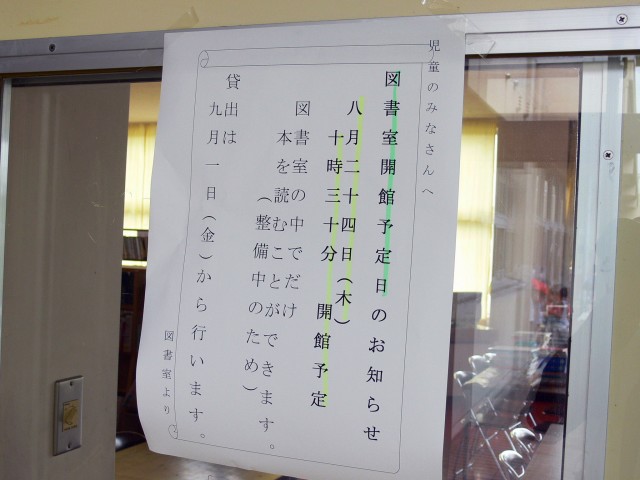 児童のみなさんへ
図書室開館予定日のお知らせ
八月二十四日(木)
十時三十分 開館予定
図書室の中でだけ
本を読むことができます。
(整備中のため)
貸出は
九月一日(金)から行います。
図書室より